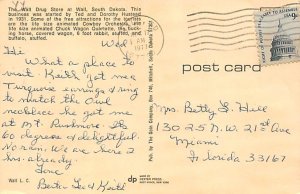 The Wall Drug Store at Wall, South Dakota. This
business was started by Ted and Dorothy Hustead
in 1931. Some of the free attractions for tourists
are the life size animated Cowboy Orchestra, the
life size animated Chuck Wagon Quartette, the buck-
ing horse, covered wagon, 6 foot rabbit, stuffed, and
buffalo, stuffed.
Wed
Hi
What a place to
visit. Keith got me
Turquoise earrings & ring
to match the Owl
necklace she got me
at Mt. Rushmore. Its
60 degrees & delightful.
No rain. We are here 2
hrs. already.
Love
Bert
Wall I. C.
Pub. by The Dale Company, Box 740, Mitchell, South Dakota 57301
MADE BY
dp DEXTER PRESS
WEST NYACK, NEW YORK
AM
197
post card
Mrs. Betty L. Hill
13025 N.W. 21st Ave
Miami
Florida 33167